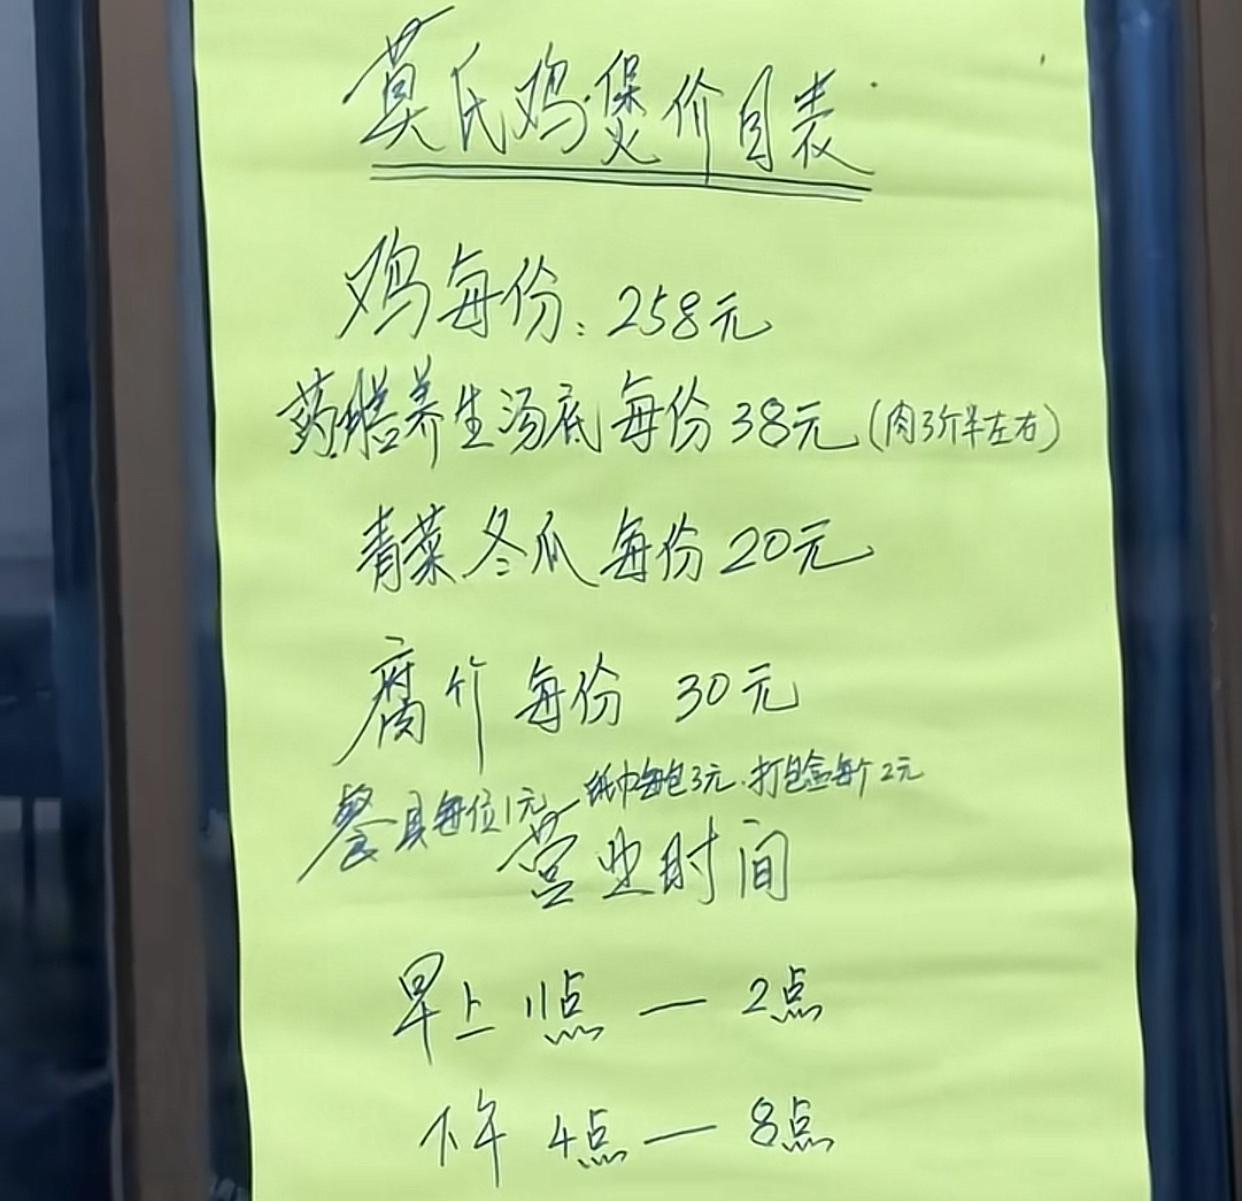 莫氏鸡煲价目表
鸡每份：258元
药膳养生汤底每份38元（肉3斤半左右）
青菜.冬瓜 每份20元
腐竹 每份 30元
餐具每位1元 纸巾每包3元.打包盒每个2元
营业时间
早上 11点 — 2点
下午 4点 — 8点